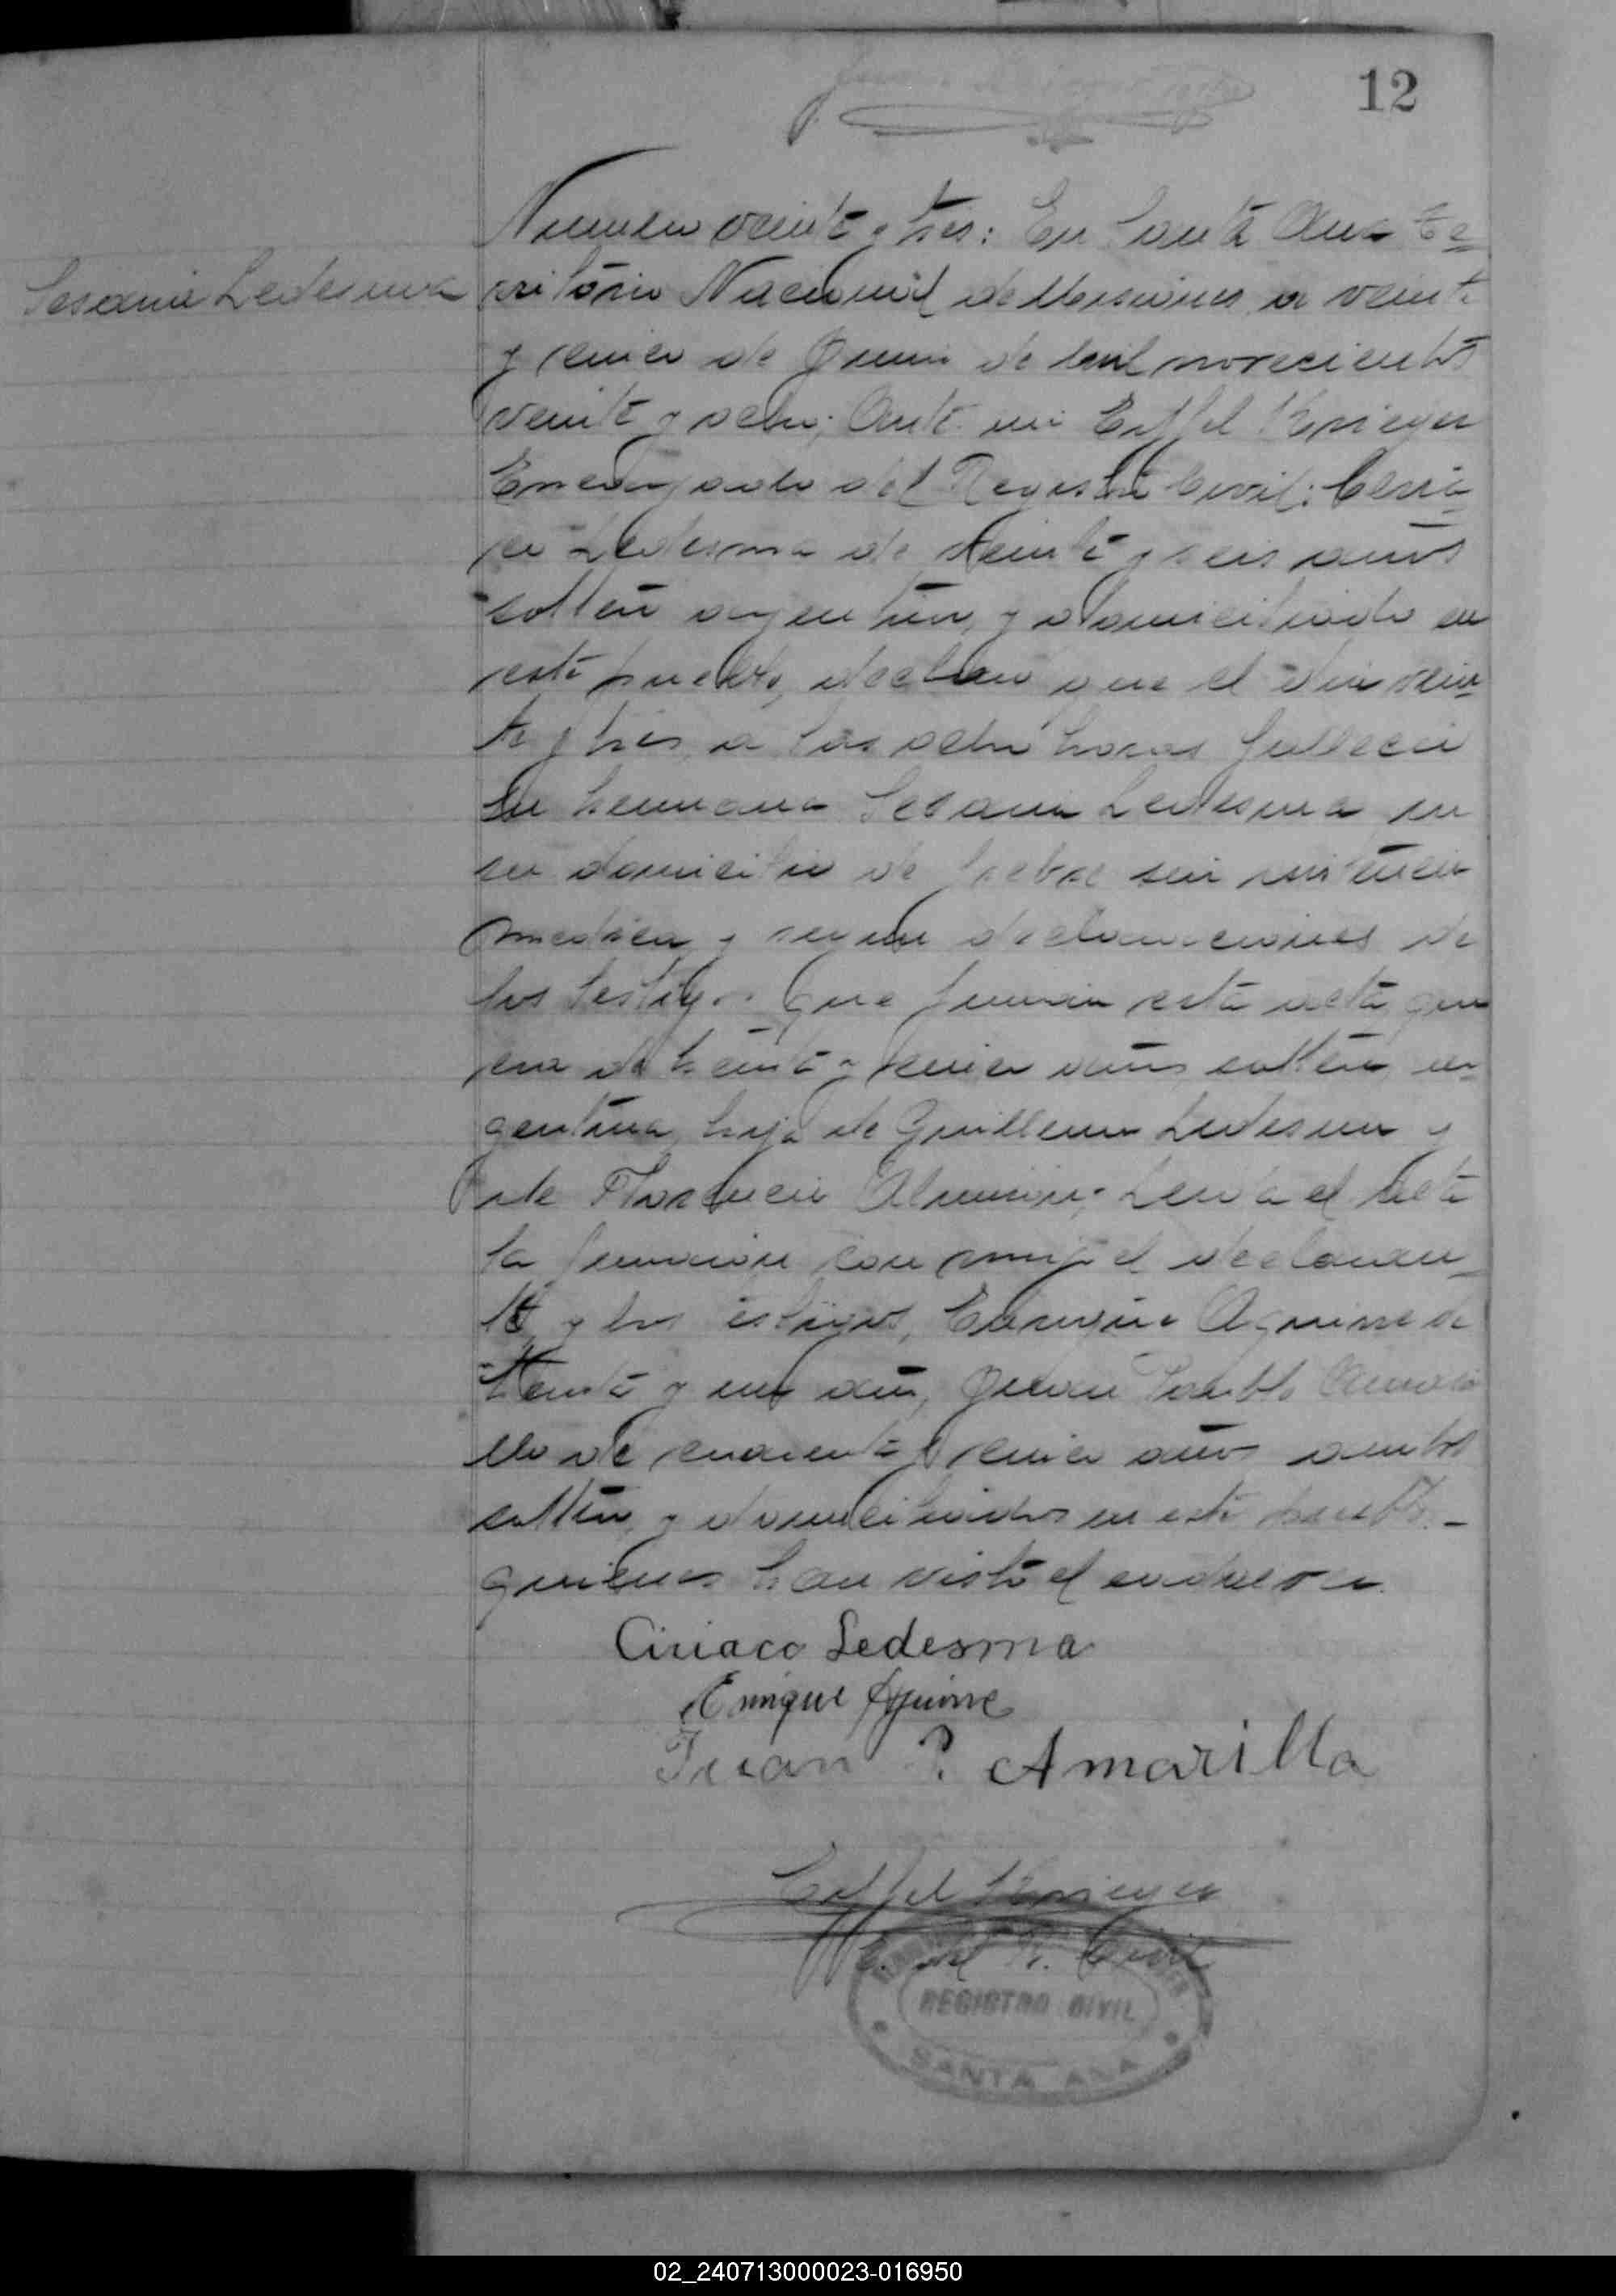 12
Numero veinte y tres: En Santa Ana Te=
Ledesma
rritorio Nacional de Misiones a veinte
y cinco de Junio de mil novecientos
veinte y ocho; Ante mi Eiffel Krieger
Encargado del Registro Civil: Ciria=
co Ledesma de veinte y seis años
soltero argentino, y domiciliado en
este pueblo, declaró que el dia vein=
te y tres a las ocho horas falleció
su hermana Ledesma en
su domicilio de fiebre sin asistencia
medica y segun declaraciones de
los testigos que firman esta acta que
era de treinta y cinco años soltera ar=
gentina hija de Guillermo Ledesma y
de Florencia Leida el acta
la firmaron con migo el declaran=
te y los testigos, Enrique Aguirre de
treinta y un año, Juan Pablo Amari
lla de cuarenta y cinco años ambos
soltero, y domiciliados en este pueblo.-
quienes han visto el cadaver.
Ciriaco Ledesma
Enrique Aguirre
Juan P. Amarilla
Eiffel Krieger
E. del R. Civil
REGISTRO CIVIL
SANTA ANA
02_240713000023-016950